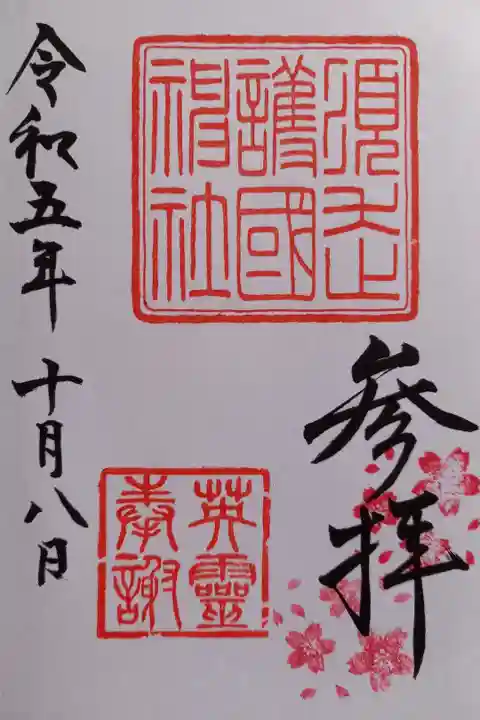 参拝
須走
護國
神社
英靈
奉謝
令和五年 十月八日